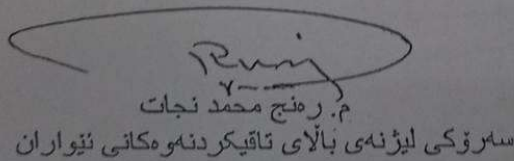 م. ڕەنج محمد نجات
سەرۆکی لیژنەی باڵای تاقیکردنەوەکانی ئێواران